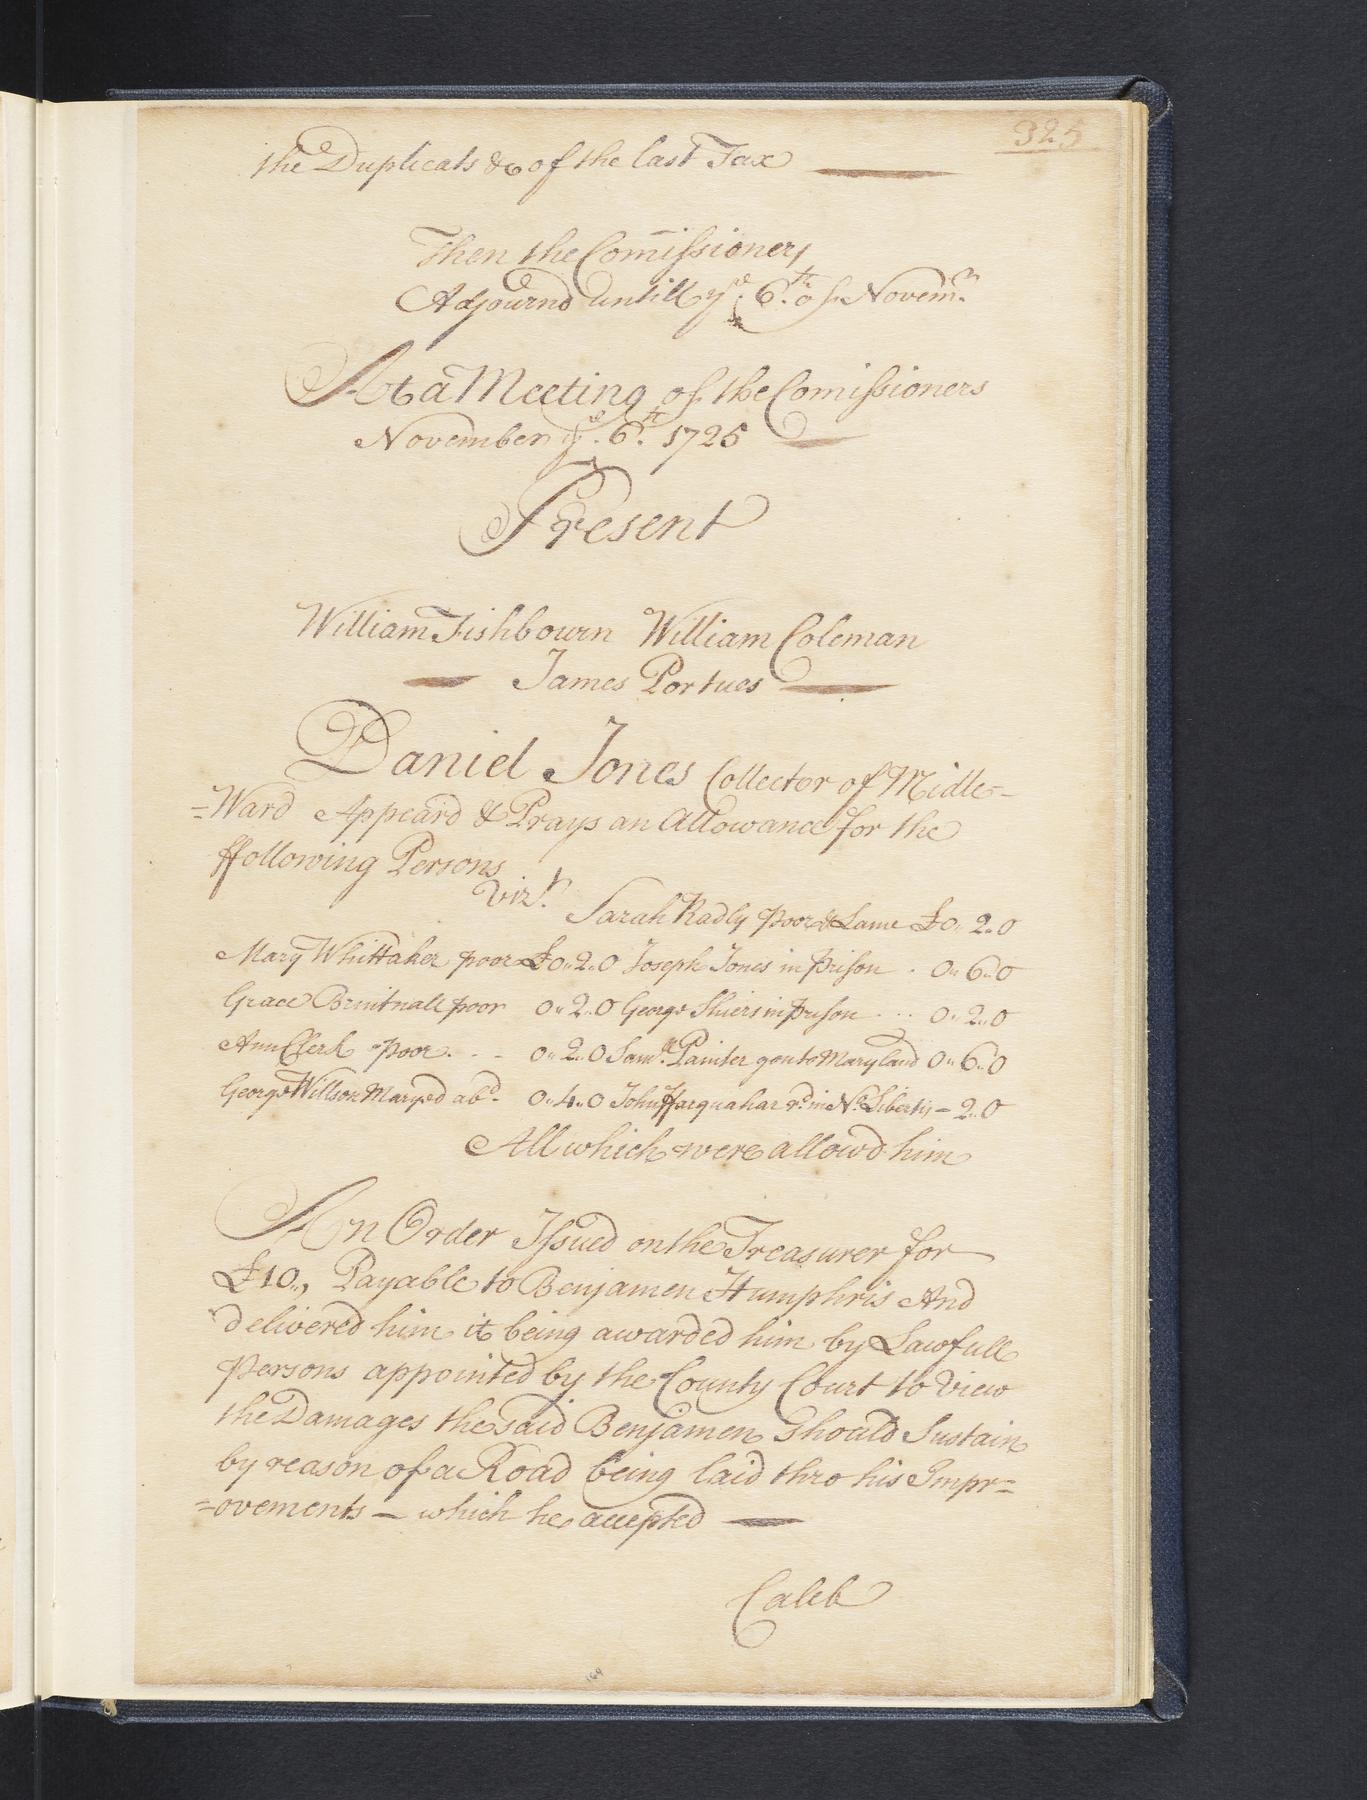 325
the Duplicats &c of the last Tax
Then the Com̄issioners
Adjournd untill yᵉ 6.ᵗʰ of Novemʳ.
At a Meeting of the Comissioners
November yᵉ. 6.ᵗʰ 1725
Present
William Fishbourn William Coleman
James Portues
Daniel Jones Collector of Midle-
=Ward Appeard & Prays an Allowance for the
ffollowing Persons
Vizᵗ.
Sarah Radly poor & Lame £0,, 2,, 0
Mary Whittaker poor £0,, 2,, 0 Joseph Jones in prison . 0,, 6,, 0
Grace Brintnall poor 0,, 2,, 0 George Shiers in prison ... 0,, 2,, 0
Ann Clerk poor . . - 0,, 2,, 0 Samˡˡ. Painter gon to Maryland 0,, 6,, 0
George Willson Maryed abᵈ- 0,, 4,, 0 John ffarquahar rᵈ. in Nº. Libertis - 2,, 0
All which were allowd him
An Order Issued on the Treasurer for
£10,, Payable to Benjamen Humphris And
delivered him it being awarded him by Lawfull
Persons appointed by the County Court to View
the Damages the said Benjamen Should Sustain
by reason of a Road being laid thro his Impr=
=ovements — which he accepted
Caleb
169